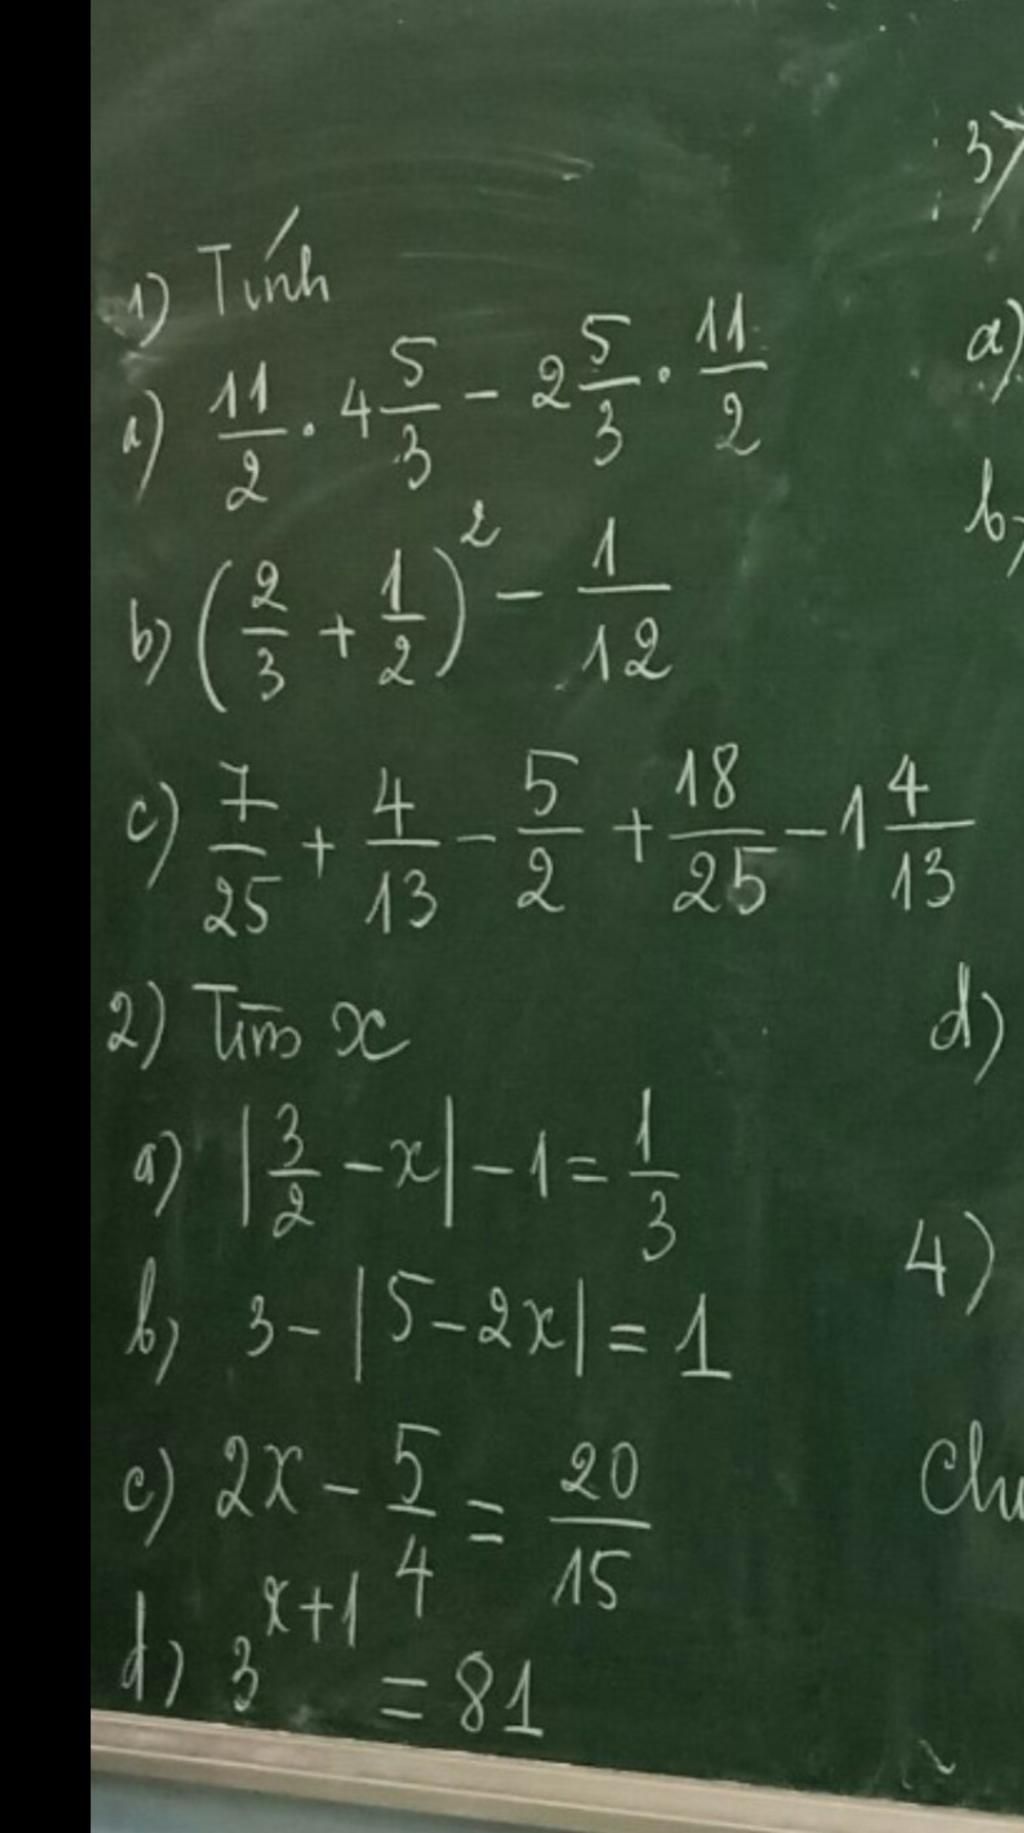 1) Tính
a) 11/2 . 4 5/3 - 2 5/3 . 11/2
b) (2/3 + 1/2)² - 1/12
c) 7/25 + 4/13 - 5/2 + 18/25 - 1 4/13
2) Tìm x
a) |3/2 - x| - 1 = 1/3
b) 3 - |5 - 2x| = 1
c) 2x - 5/4 = 20/15
d) 3^(x+1) = 81
3)
a)
b)
d)
4)